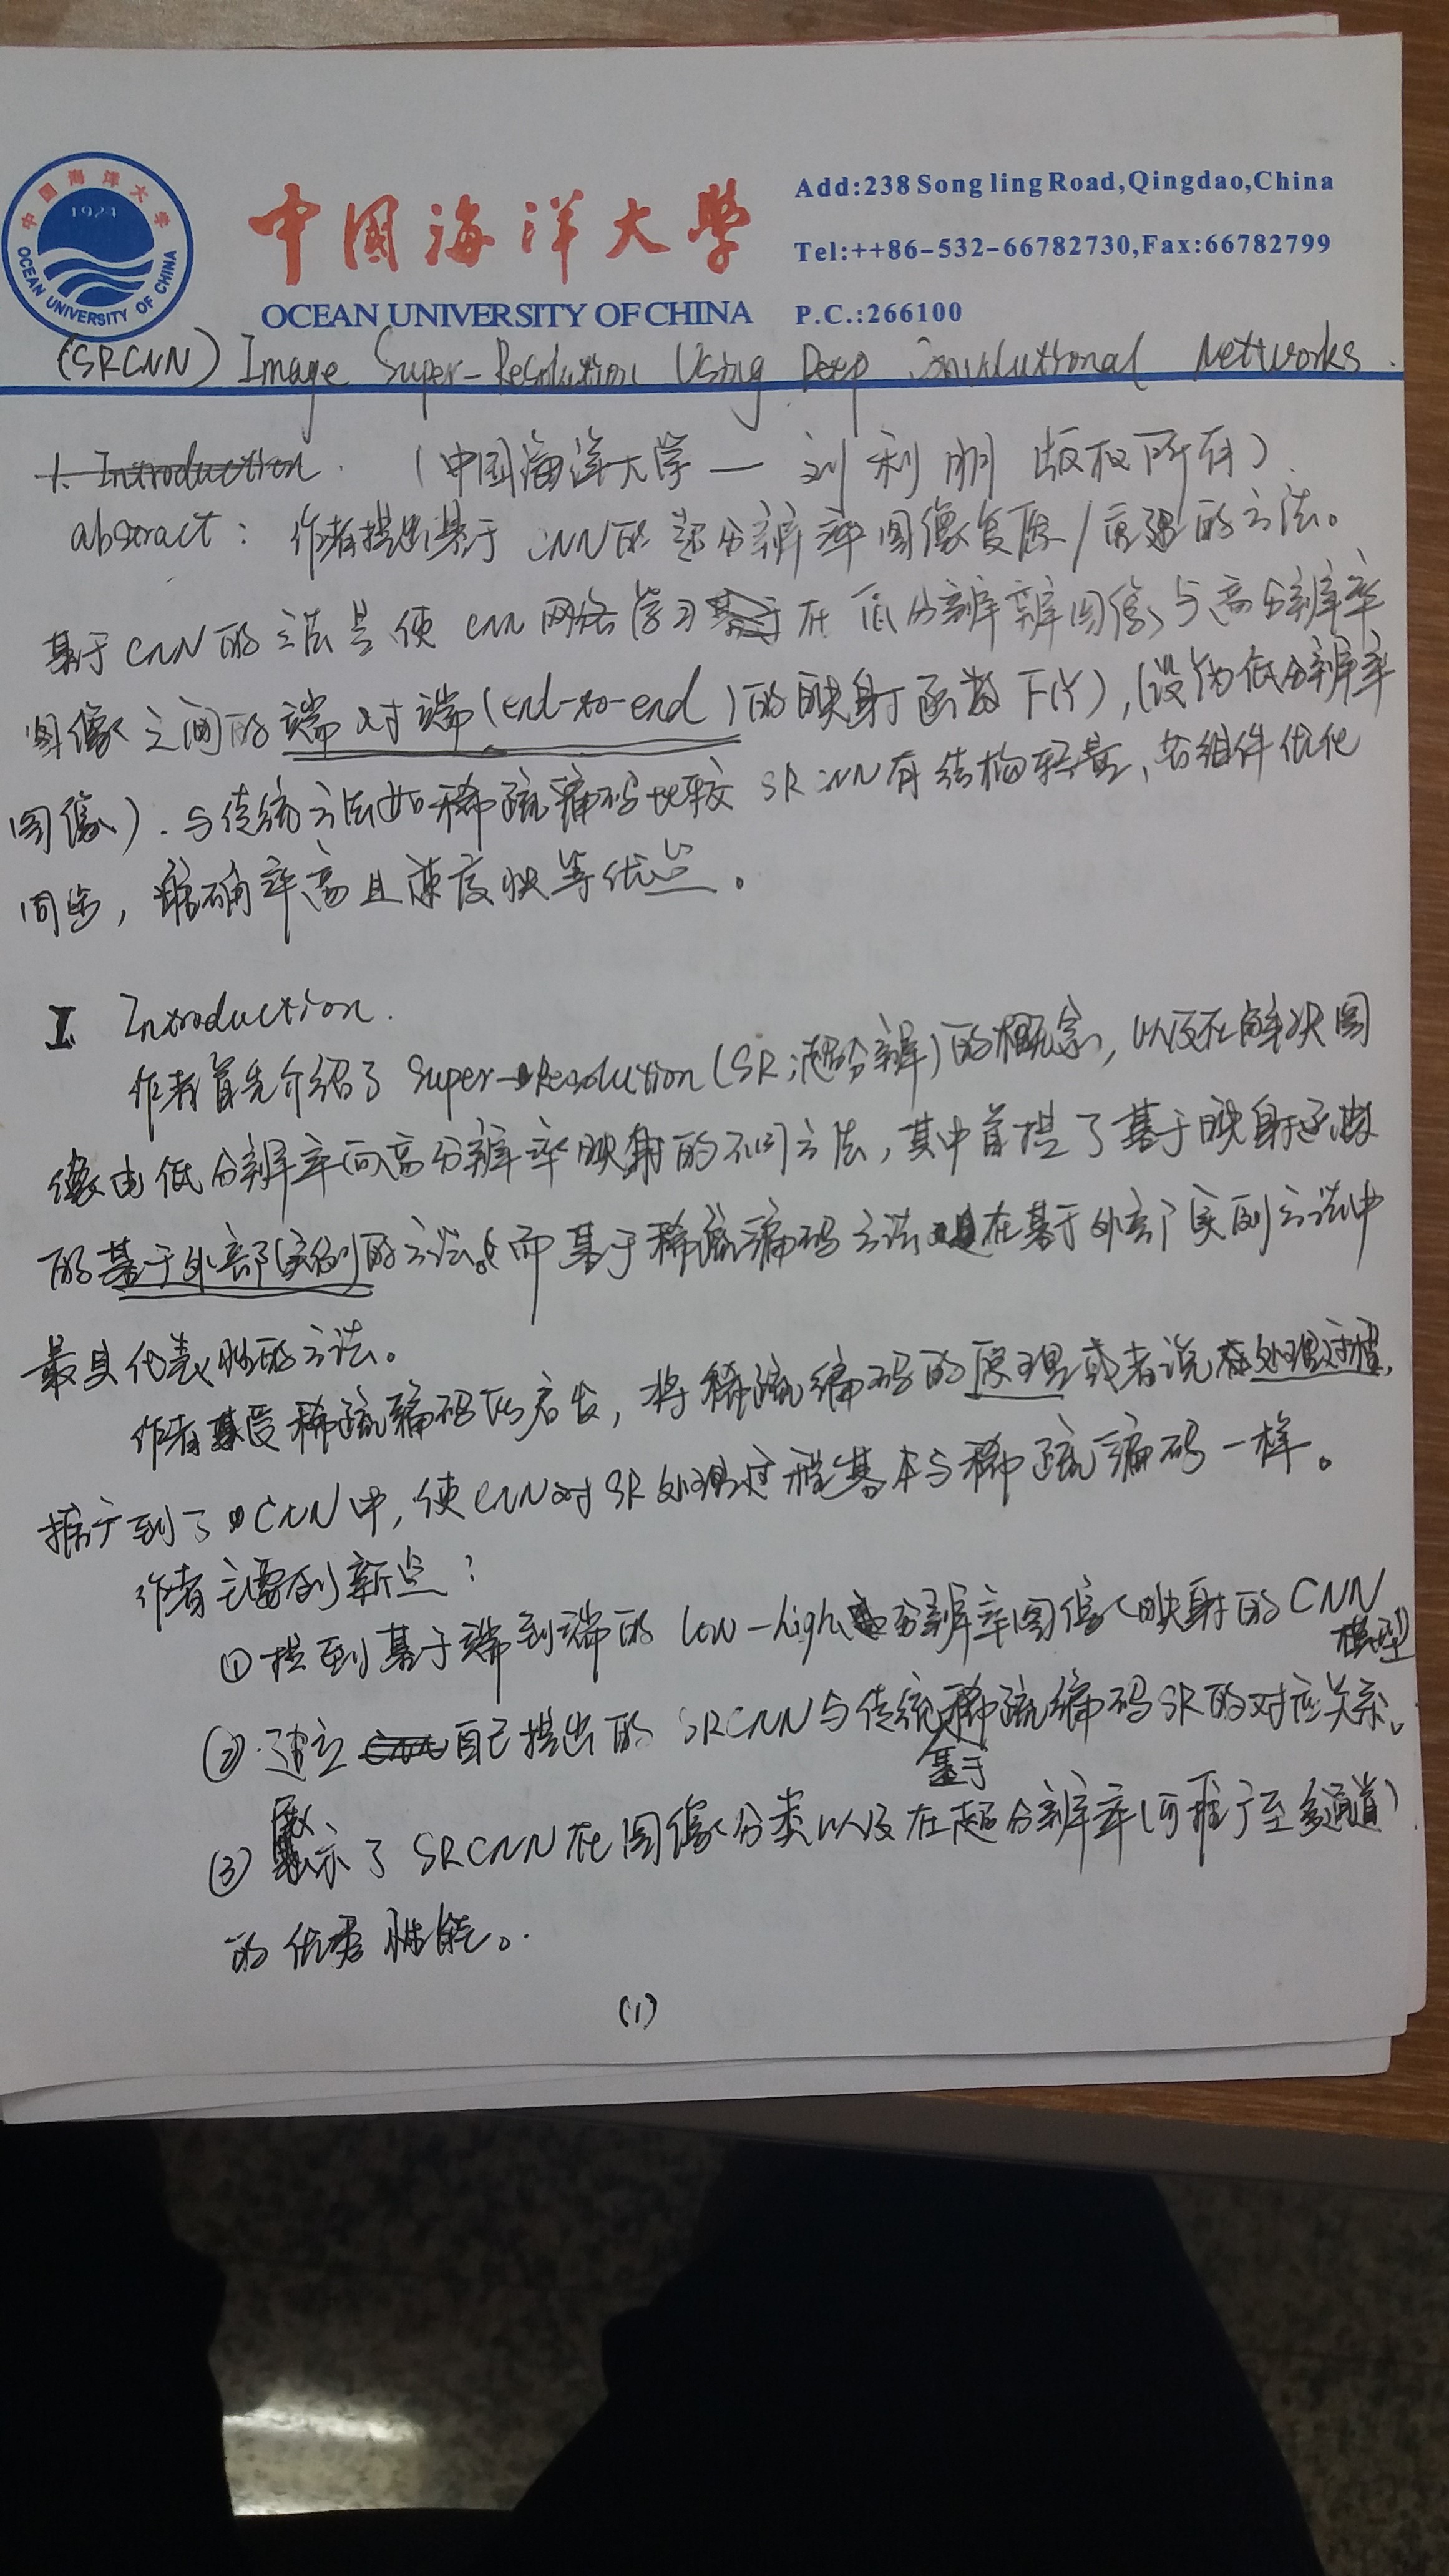 中国海洋大学
1924
OCEAN UNIVERSITY OF CHINA
中國海洋大學
OCEAN UNIVERSITY OF CHINA
Add:238 Song ling Road,Qingdao,China
Tel:++86-532-66782730,Fax:66782799
P.C.:266100
(SRCNN) Image Super-Resolution Using Deep Convolutional Networks.
1. Introduction. (中国海洋大学—刘利朋 版权所有).
abstract: 作者提出基于CNN的超分辨率图像复原/重建的方法。
基于CNN的方法是使CNN网络学习在低分辨辨图像与高分辨率
图像之间的端对端(end-to-end)的映射函数F(Y),(设Y为低分辨率
图像).与传统方法如稀疏编码比较SRCNN有结构轻量、各组件优化
同步,准确率高且速度快等优点。
I Introduction.
作者首先介绍了Super-Resolution(SR;超分辨)的概念,以及在解决图
像由低分辨率向高分辨率映射的不同方法,其中首提了基于映射函数
的基于外部实例的方法。而基于稀疏编码方法是在基于外部实例方法中
最具代表性的方法。
作者受稀疏编码所启发,将稀疏编码的原理或者说处理过程,
推广到了CNN中,使CNN对SR处理过程基本与稀疏编码一样。
作者主要创新点:
①提到基于端到端的low-high分辨率图像映射的CNN
模型
②建立自己提出的SRCNN与传统基于稀疏编码SR的对应关系。
③展示了SRCNN在图像分类以及在超分辨率(可推广至多通道)
的优秀性能。
(1)